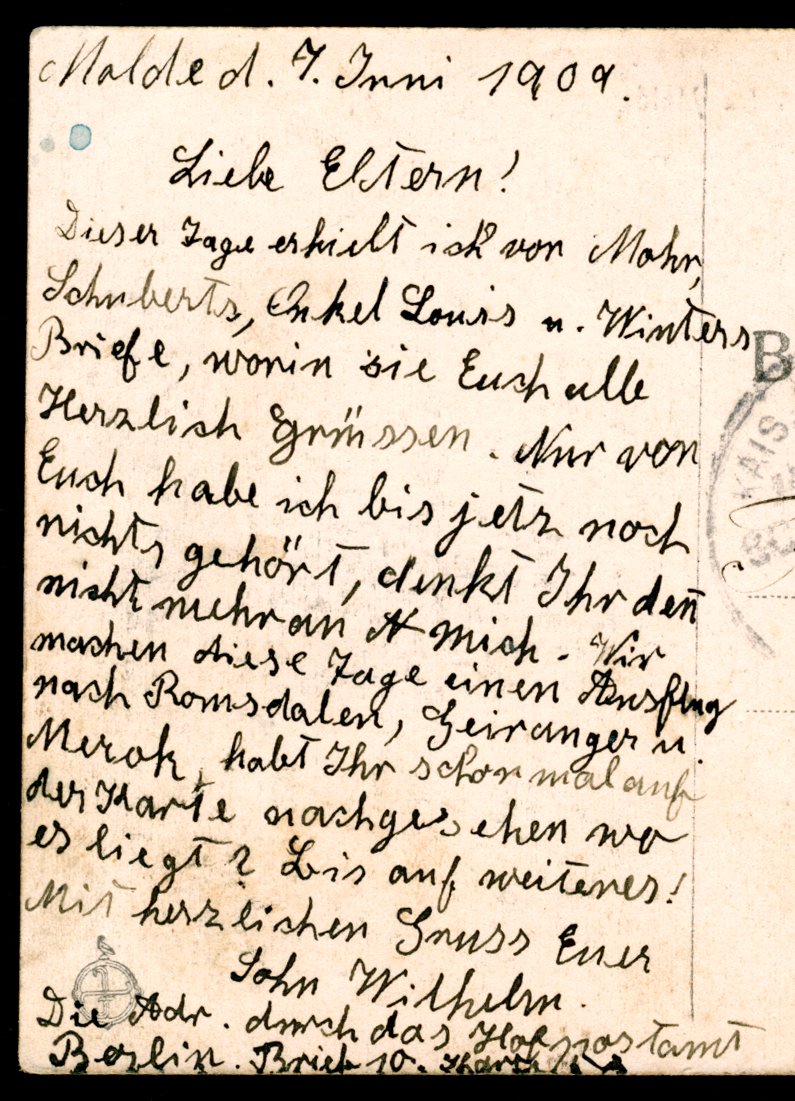 Molde d. 7. Juni 1909.
Liebe Eltern!
Dieser Tage erhielt ich von Mohr,
Schuberts, Onkel Louis u. Winters
Briefe, worin sie Euch alle
Herzlich Grüssen. Nur von
Euch habe ich bis jetz noch
nichts gehört, denkt Ihr den̄
nicht mehr an mich. Wir
machen diese Tage einen Ausflug
nach Romsdalen, Geiranger u.
Merok, habt Ihr schon mal auf
der Karte nachgesehen wo
es liegt? Bis auf weiteres!
Mit herzlichen Gruss Euer
Sohn Wilhelm.
Die Adr. durch das Hofpostamt
Berlin. Brief 10. Karte
B
KAIS